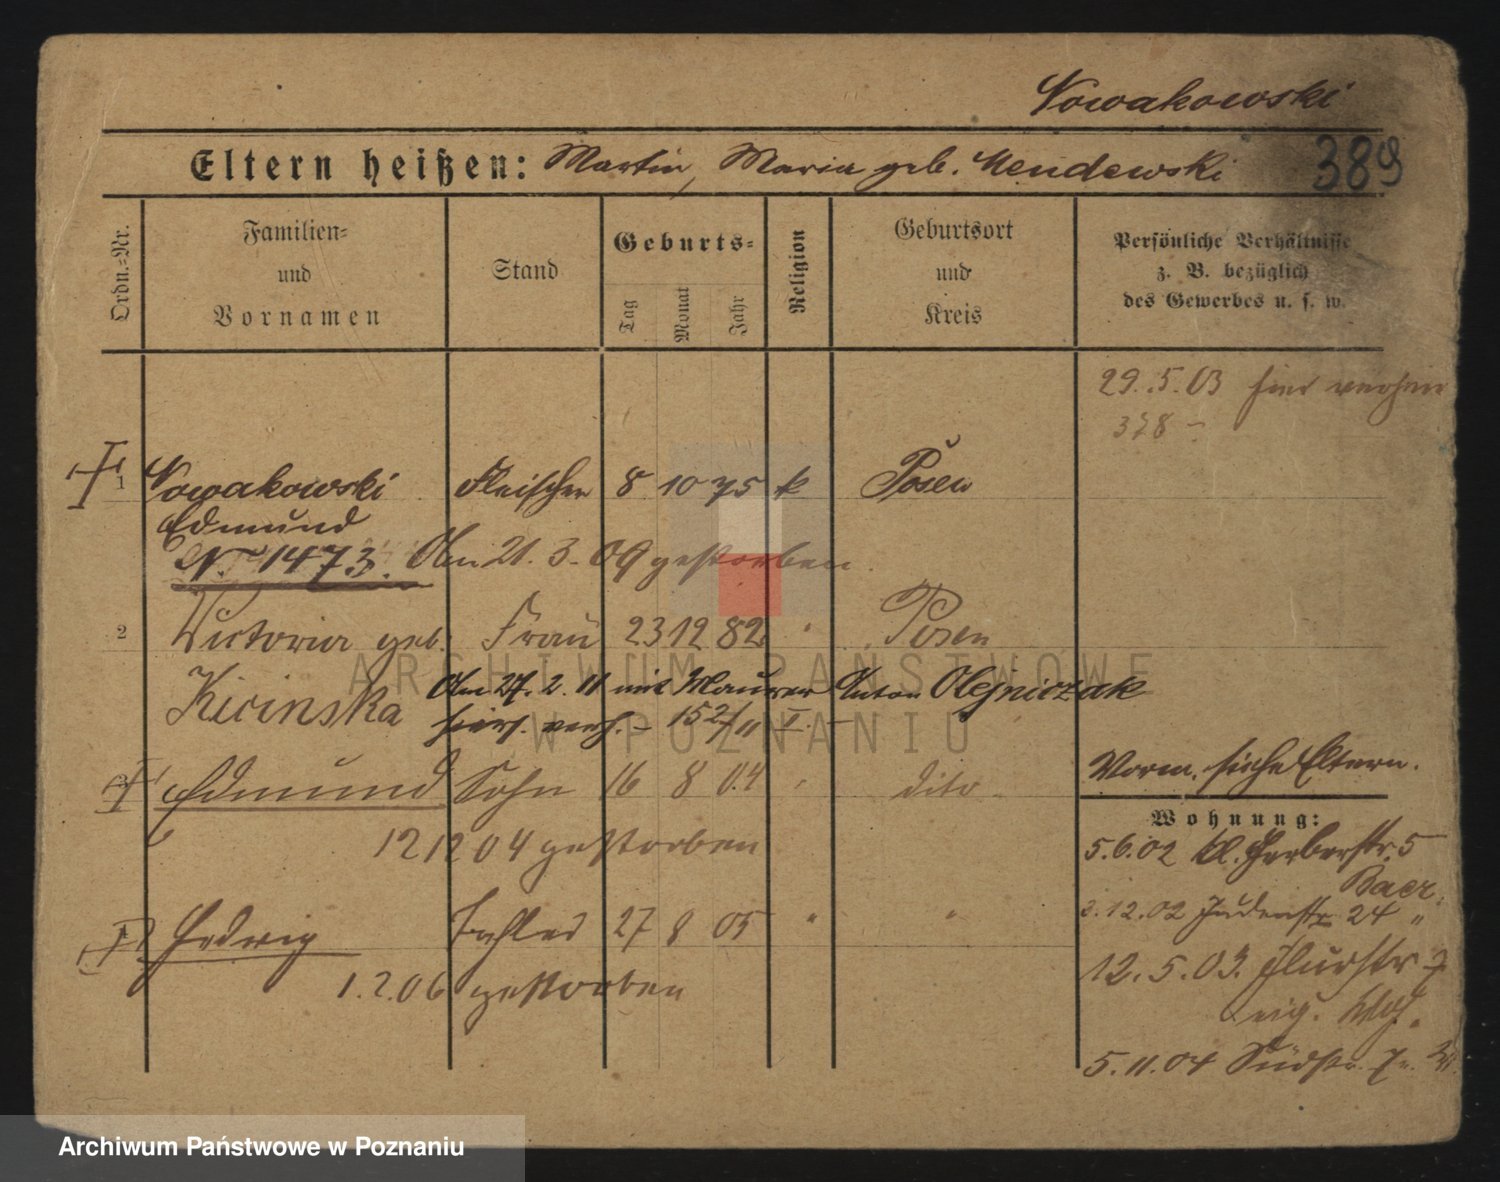 Nowakowski
Eltern heißen: Martin, Maria geb. Mendewski
389
Ordn.-Nr.
Familien-
und
Vornamen
Stand
Geburts-
Tag Monat Jahr
Religion
Geburtsort
und
Kreis
Persönliche Verhältnisse
z. B. bezüglich
des Gewerbes u. s. w.
29.5.03 hier
378 -
1 Nowakowski Fleischer 8 10 75 k Posen
Edmund
N. 1473. Am 21.3.09 gestorben.
2 Victoria geb. Frau 23 12 82 " Posen
Kicinska
Am 27.2.11 mit Maurer Anton Olejniczak
hiers. verh. - 152/11 I. -
3 Edmund Sohn 16 8 04 " dito
12 12 04 gestorben
Hedwig Tochter 27 8 05 " "
1.2.06 gestorben
Vorm. siehe Eltern.
Wohnung:
5.6.02 kl. Gerberstr. 5
Baer.
2.12.02 Judenstr 24 "
12.5.03. Flurstr 7
eig. Whg.
5.11.04 Südstr. 7
ARCHIWUM PAŃSTWOWE
W POZNANIU
Archiwum Państwowe w Poznaniu